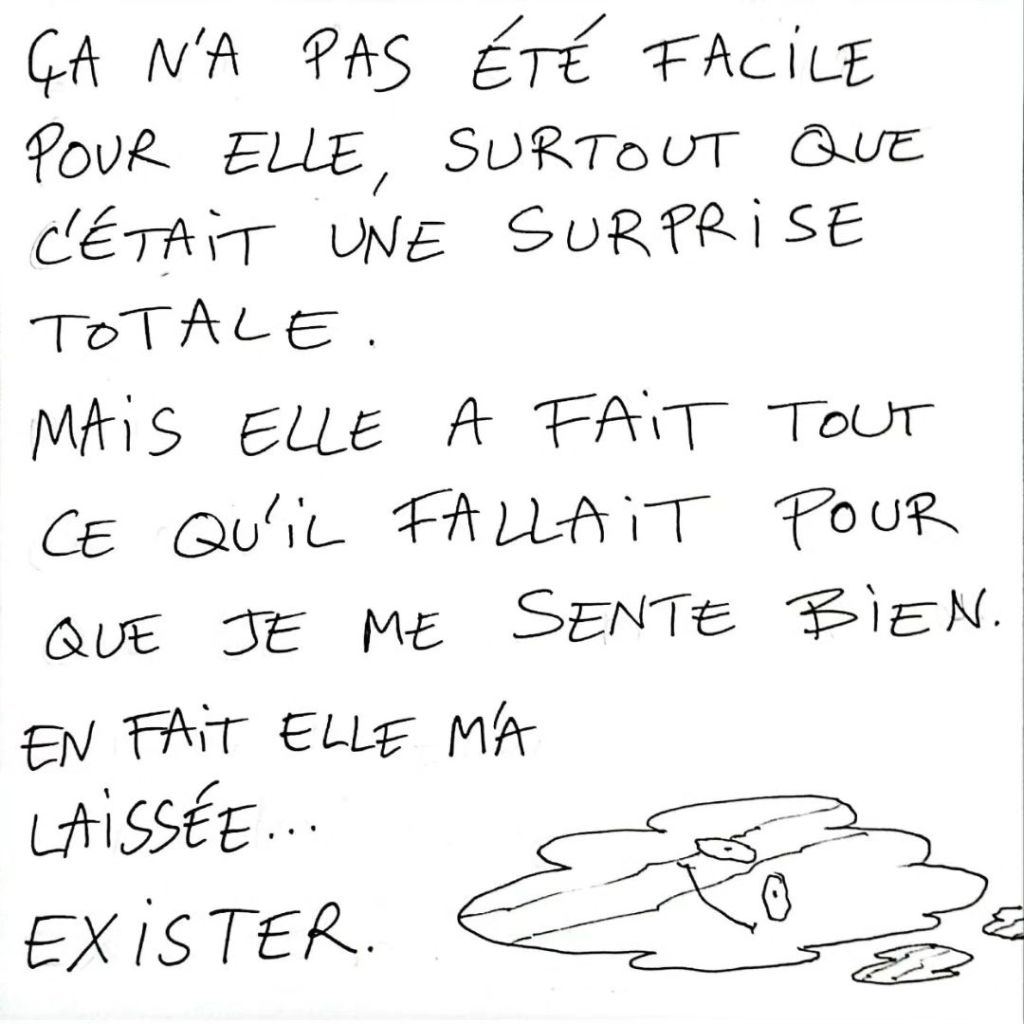 ÇA N'A PAS ÉTÉ FACILE
POUR ELLE, SURTOUT QUE
C'ÉTAIT UNE SURPRISE
TOTALE.
MAIS ELLE A FAIT TOUT
CE QU'IL FALLAIT POUR
QUE JE ME SENTE BIEN.
EN FAIT ELLE M'A
LAISSÉE...
EXISTER.